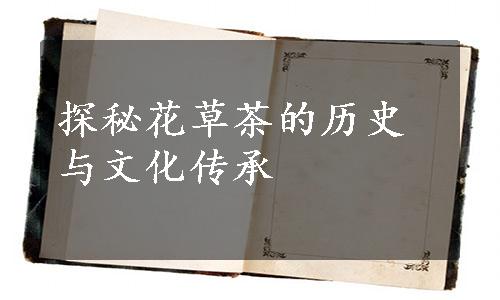 探秘花草茶的历史
与文化传承